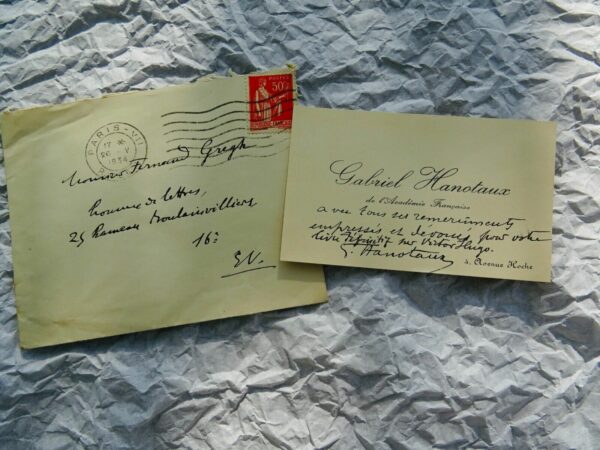 PARIS-VII
17 H
26 - V
1934
POSTES
50c
Monsieur Fernand Gregh
homme de lettres,
25 hameau Boulainvilliers
16e
E.V.
Gabriel Hanotaux
de l'Académie Française
avec tous ses remerciments
empressés et dévoués pour votre
livre définitif sur Victor Hugo.
G. Hanotaux
4, Avenue Hoche